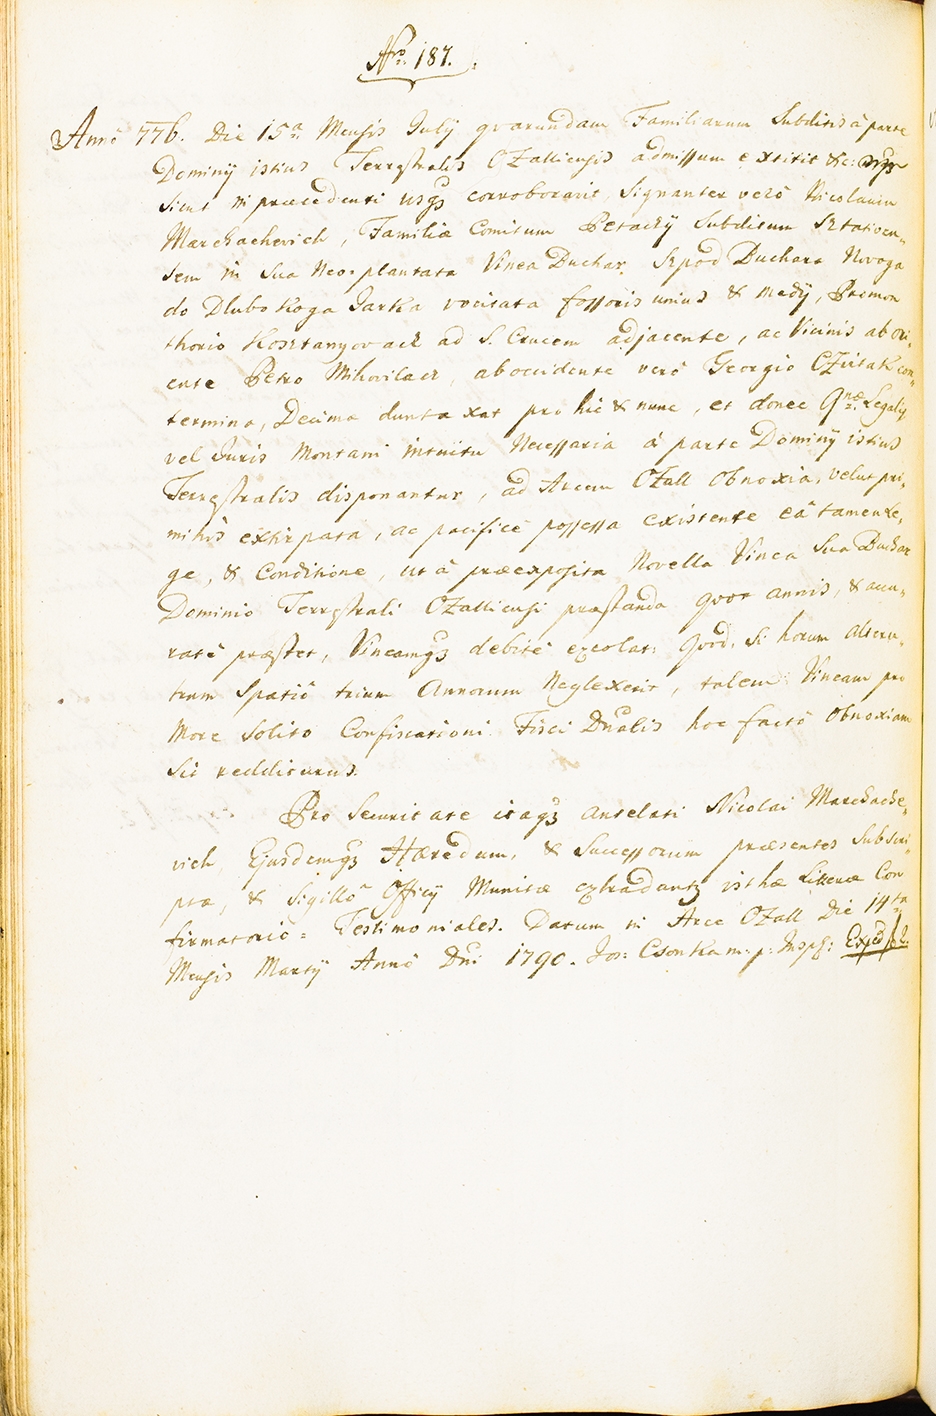 Nro. 187.
Annô 776. Die 15a Mensis Julÿ quarundam Familiarum Subditis â parte
Dominÿ istius Terrestralis OZalliensis admissum extitit &c:
sicut in præcedenti usqз corroboravit, Signanter verô Nicolaum
Marchachevich, Familiæ Comitum Petachÿ Subditum
sem in sua Neo-plantata Vinea Duchar, Duchara Novoga
do Dlubokoga Jarka vocitata fossoris unius & medÿ, Promon
thorio Kosztanyovach ad S. Crucem adjacente, ac Vicinis ab ori„
ente Petro Mihovilach, ab occidente verô Georgio OZirtak con„
termina, Decima duntaxat pro hic & nunc, et donec Legalis
vel Juris Montani intuitu Necessaria â parte Dominÿ istius
Terrestralis disponantur, ad Arcem OZall obnoxia, velut pri„
mitùs extirpata, ac pacificè possessa existente eâ tamen Le„
ge, & Conditione, ut â præexposita Novella Vinea sua Duchar
Dominio Terrestrali OZalliensi præstanda quot annis, & accu„
ratê præstet, Vineamqз debitê excolat: Quod, si horum alteru„
trum Spatiô trium Annorum Neglexerit, talem Vineam pro
More Solito Confiscationi Fisci Dnalis hoc factô obnoxiam
sit redditurus.
Pro Securitate itaqз antelati Nicolai Marchache„
vich, Ejusdemqз Hæredum, & Successorum præsentes Subscri„
ptæ, & Sigillô Officÿ Munitæ extradantur isthæ Litteræ Con
firmatoriô = Testimoniales. Datum in Arce OZall Die 14ta
Mensis Martÿ Annô Dni 1790. Jos: Csonka m: p: Insp: Exped